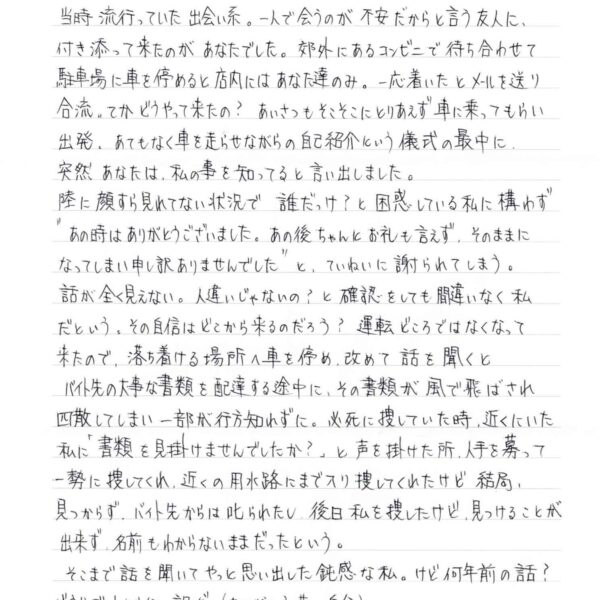 当時 流行っていた 出会い系。一人で会うのが 不安だからと言う友人に、
付き添って来たのが あなたでした。郊外にあるコンビニで待ち合わせて
駐車場に車を停めると店内には あなた達のみ。一応着いたとメールを送り
合流。てか どうやって来たの? あいさつもそこそこにとりあえず車に乗ってもらい
出発、あてもなく車を走らせながらの自己紹介という儀式の最中に、
突然 あなたは、私の事を知ってると言い出しました。
陸に顔すら見れてない状況で 誰だっけ?と困惑している私に構わず
"あの時はありがとうございました。あの後ちゃんとお礼も言えず、そのままに
なってしまい申し訳ありませんでした"と、ていねいに謝られてしまう。
話が全く見えない。人違いじゃないの?と確認をしても間違いなく私
だという。その自信はどこから来るのだろう? 運転どころではなくなって
来たので、落ち着ける場所へ車を停め、改めて 話を聞くと
バイト先の大事な書類を配達する途中に、その書類が風で飛ばされ
四散してしまい一部が行方知れずに。必死に捜していた時、近くにいた
私に「書類を見掛けませんでしたか?」と声を掛けた所、人手を募って
一勢に捜してくれ、近くの用水路にまで入り捜してくれたけど 結局、
見つからず、バイト先からは叱られたし、後日私を捜したけど、見つけることが
出来ず、名前もわからないままだったという。
そこまで話を聞いてやっと思い出した鈍感な私。けど何年前の話?